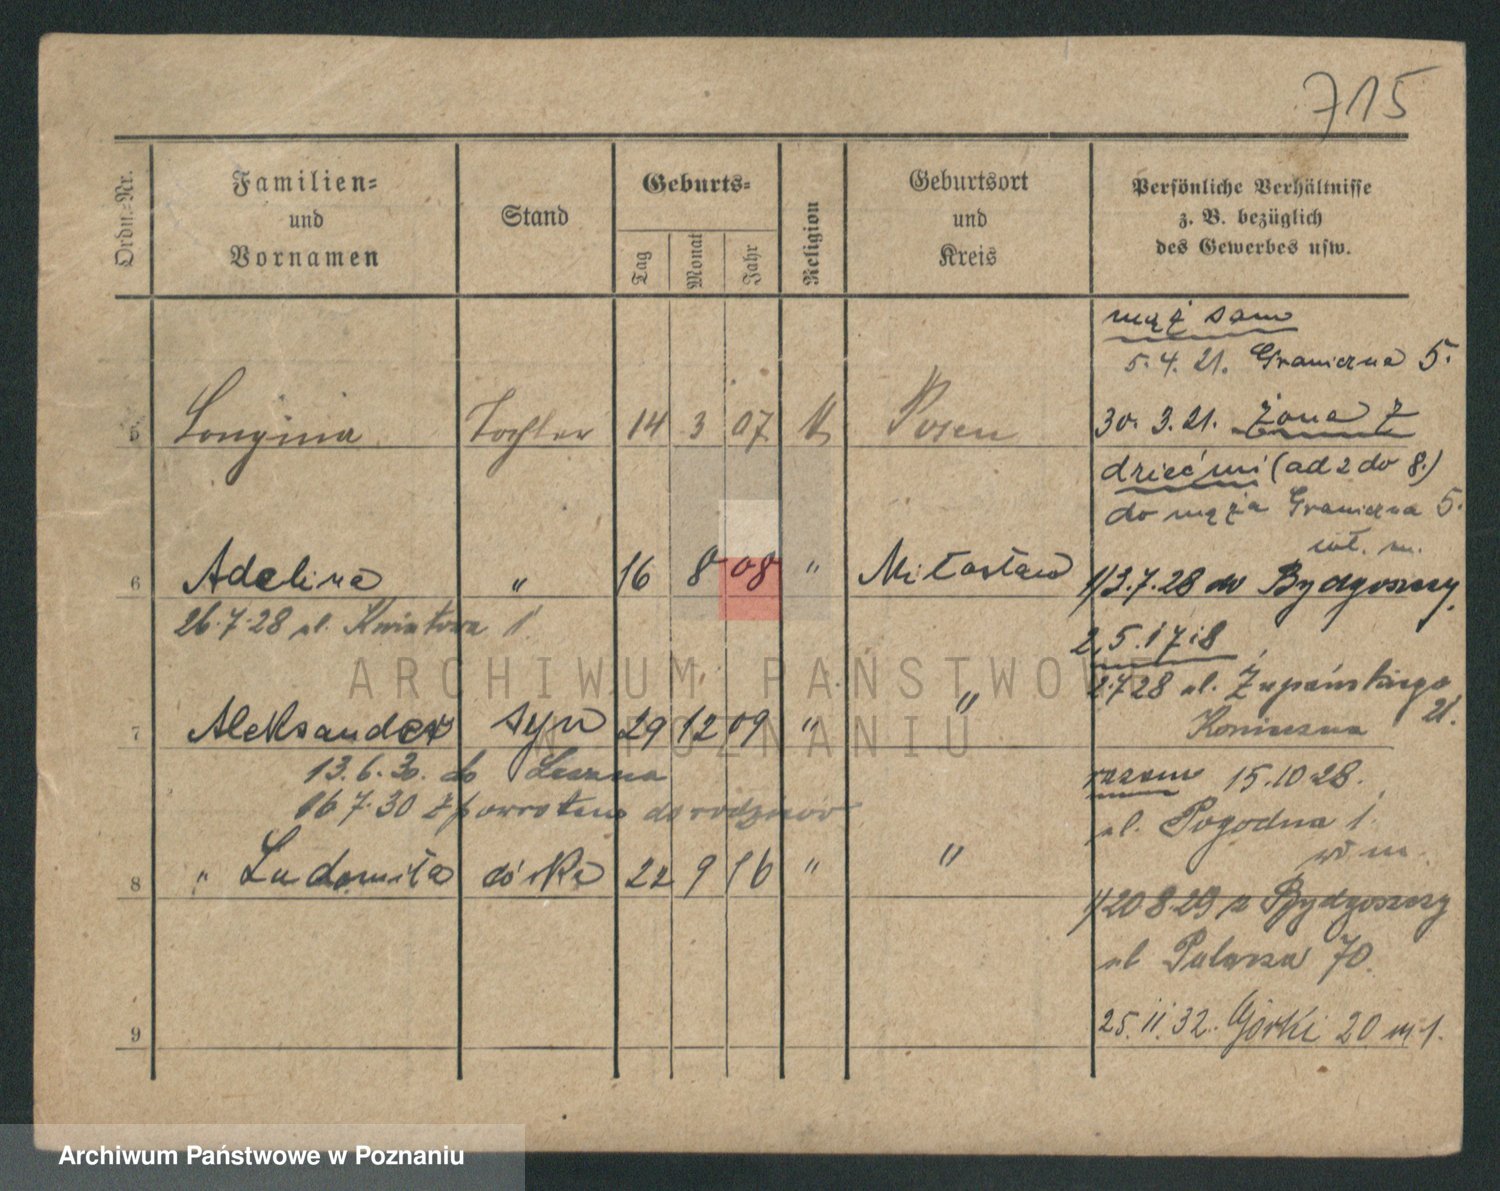 715
Ordn.-Nr.
Familien-
und
Vornamen
Stand
Geburts-
Tag
Monat
Jahr
Religion
Geburtsort
und
Kreis
Persönliche Verhältnisse
z. B. bezüglich
des Gewerbes usw.
mąż sam
5.4.21. Graniczna 5.
5 Longina Tochter 14 3 07 Posen
30.3.21. Żona z
dziećmi (od 2 do 8.)
do męża Graniczna 5.
wł. m.
6 Adelina " 16 8 08 " Miłosław
1/3.7.28 do Bydgoszczy
26.7.28 ul. Kwiatowa 1.
2,5.i 7 i 8
2.7.28 ul. Żupańskiego 21.
Konieczna
7 Aleksander syn 29 12 09 " "
13.6.30. do Leszna
16 7.30 z powrotem do rodziców
razem 15.10.28.
ul. Pogodna 1.
w m.
8 " Ludomiła córka 22 9 16 " "
1/20.8.29 z Bydgoszczy
ul. Palacza 70.
9
25.11.32. Górki 20 m 1.
ARCHIWUM PAŃSTWOWE
W POZNANIU
Archiwum Państwowe w Poznaniu